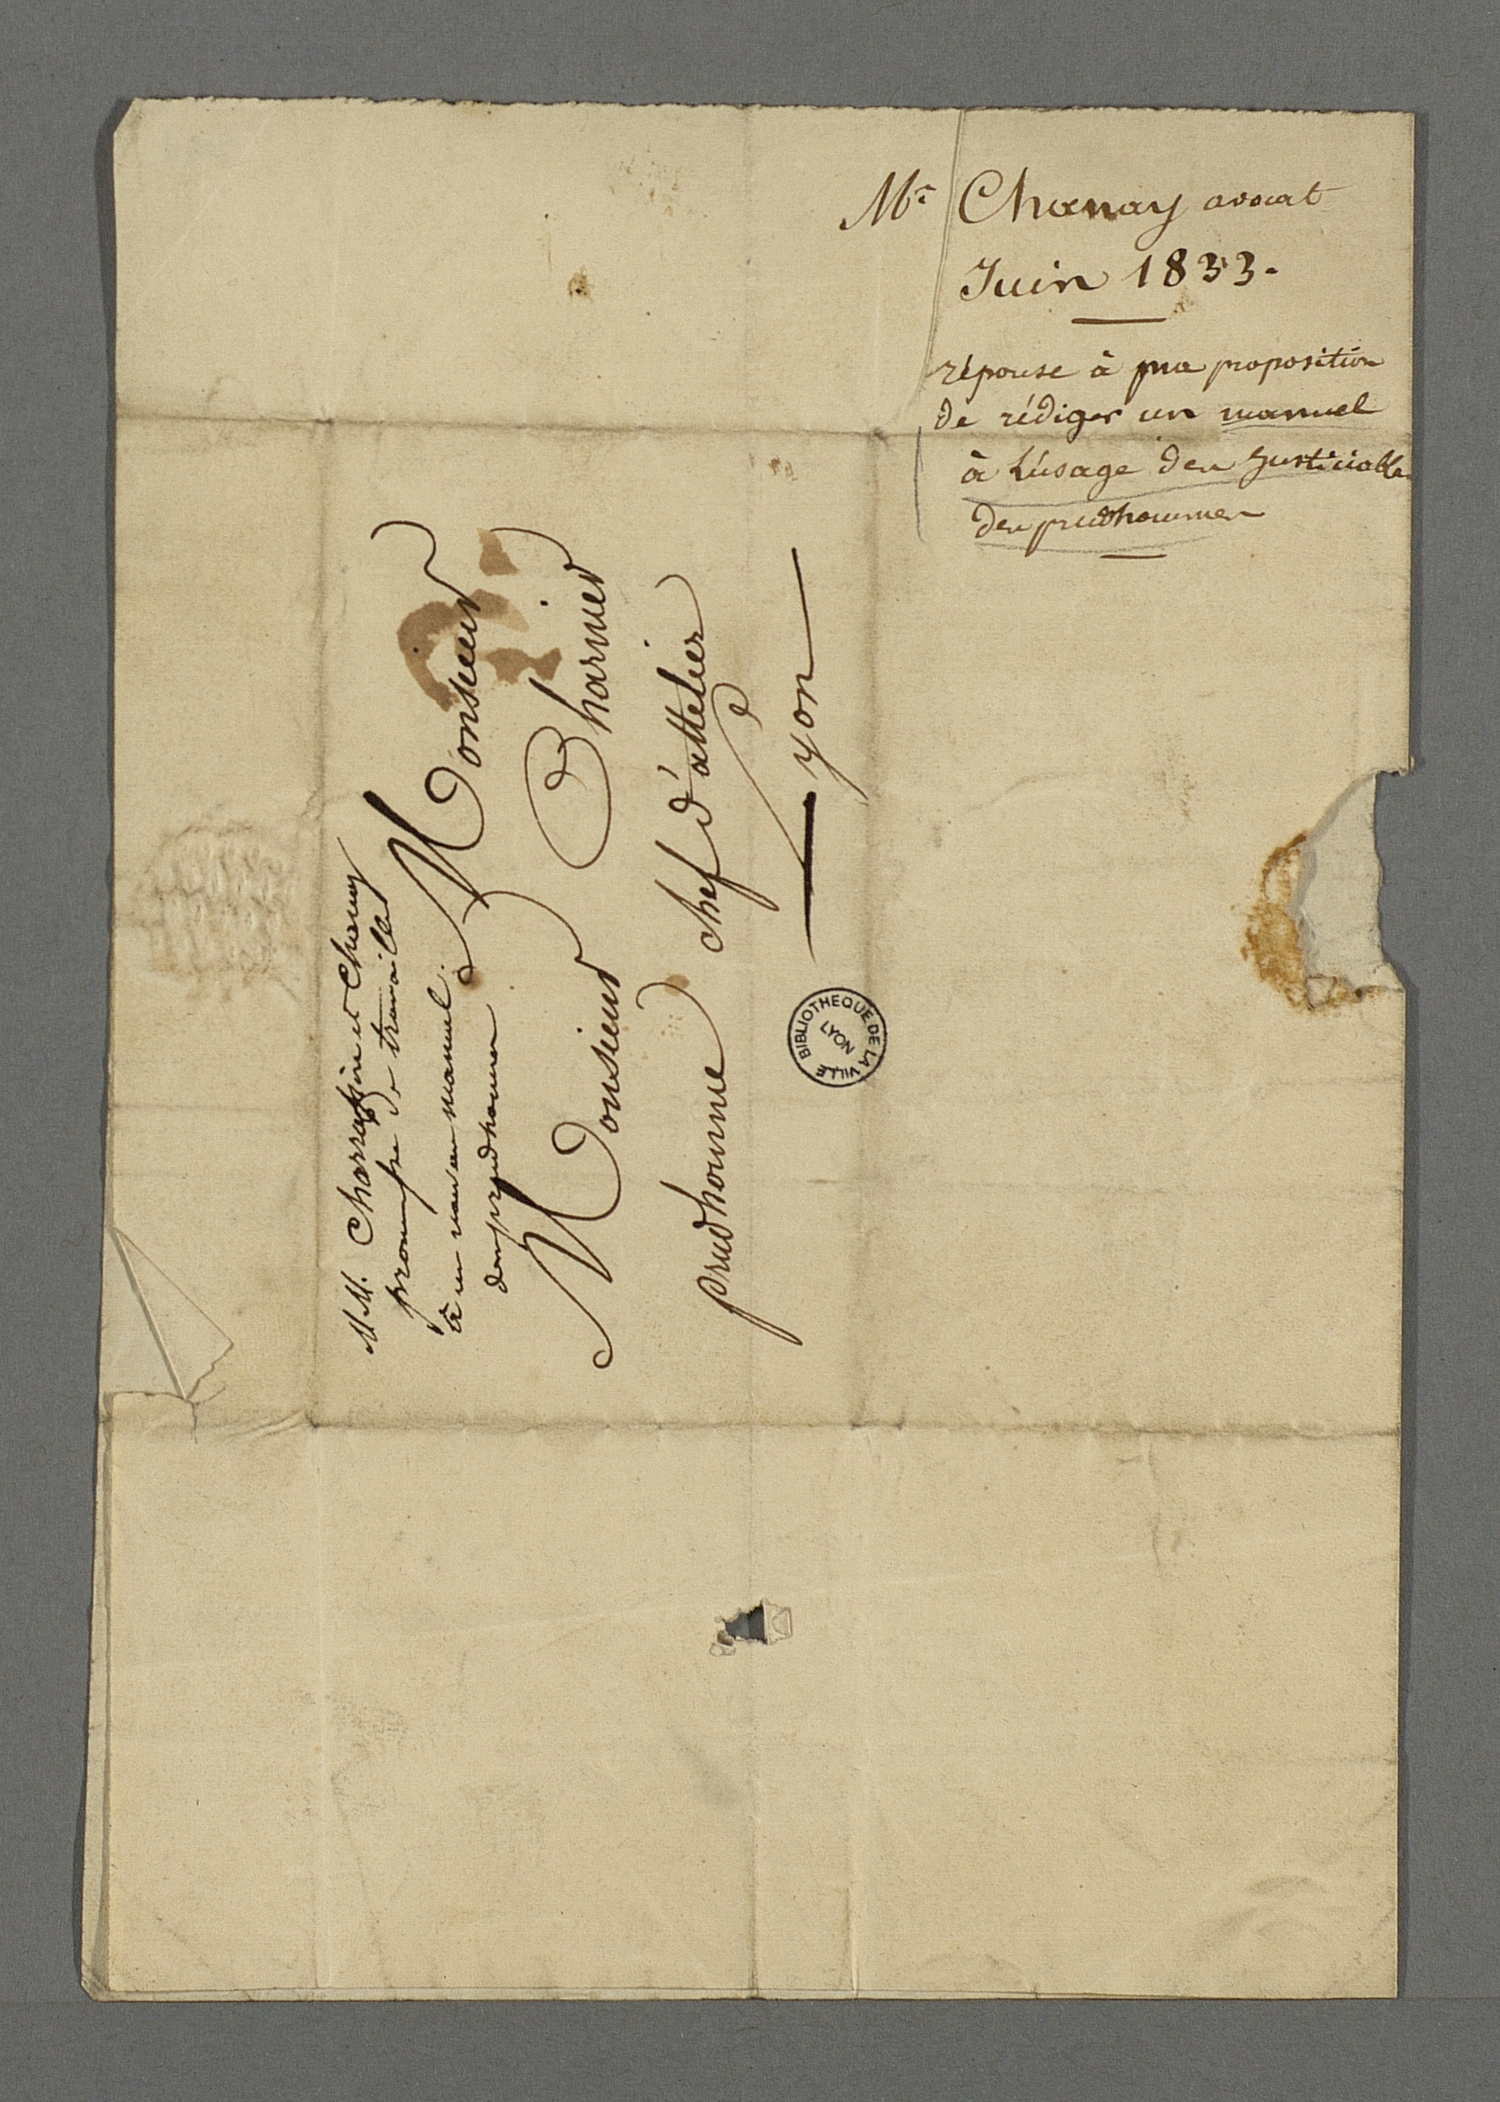 Mr Chanay avocat
Juin 1833.
réponse à ma proposition
de rédiger un manuel
à l'usage des justiciables
des prudhommes
MM. Charassin et Chanay
promesse de travailler
à un nouveau manuel.
des prudhommes
Monsieur
Monsieur Charnier
prudhomme chef d'attelier
Lyon
BIBLIOTHEQUE DE LA VILLE
LYON